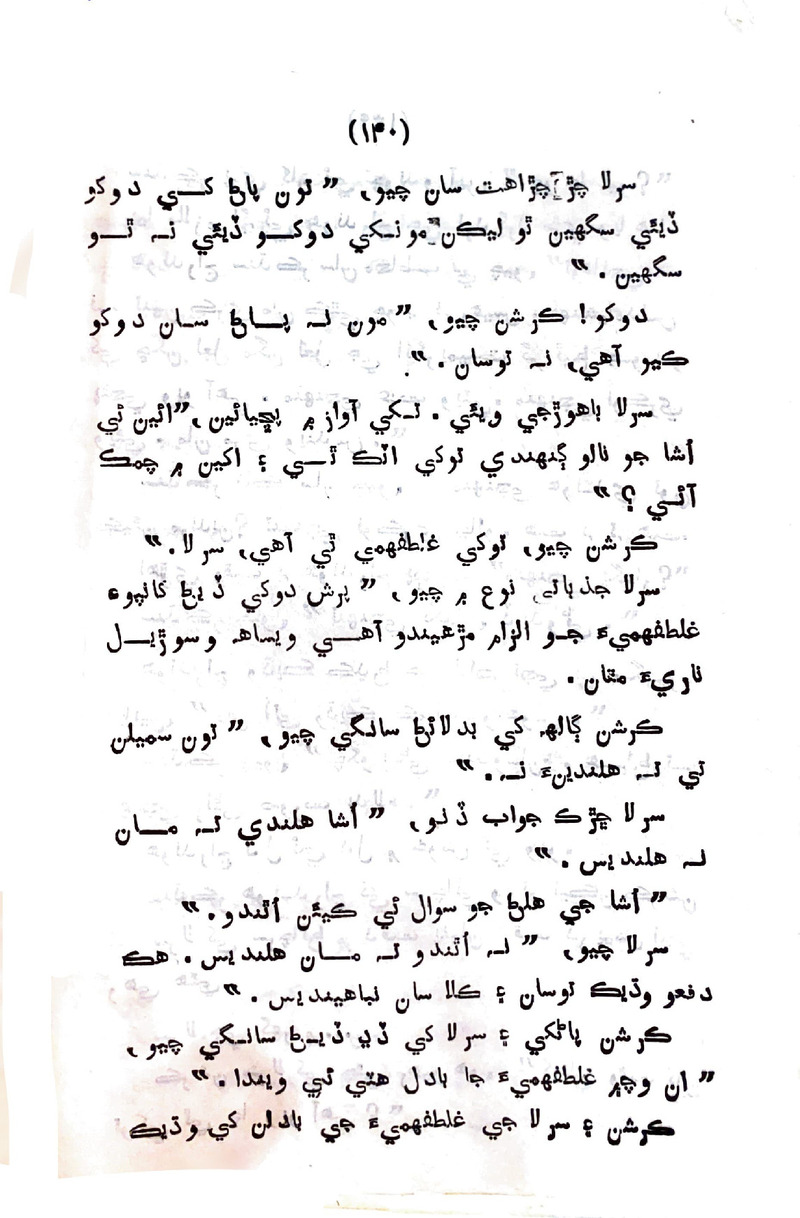 (۱۴۰)
سرلا چڙ چڙاهٽ سان چيو، ”تون پاڻ کــي دوکو
ڏيئي سگهين ٿو ليڪن مونـکي دوکــو ڏيئي نـ ٿــو
سگهين.“
دوکو! ڪرشن چيو، ”مون نـ پــاڻ ســان دوکو
ڪيو آهي، نـ توسان.“
سرلا ٻاهوڙجي ويئي. تـکي آواز ۾ پڇيائين، ”ائين ئي
اُشا جو نالو ڳنهندي توکي اٽڪ ٿــي ۽ اکين ۾ چمڪ
آئــي؟“
ڪرشن چيو، توکي غلطفهمي ٿي آهي، سرلا.“
سرلا جذباتي نوع ۾ چيو، ”پرش دوکي ڏيڻ کانپوءِ
غلطفهميءَ جـو الزام مڙهيندو آهــي ويساهـ وسوڙيــل
ناريءَ مٿان.
ڪرشن ڳالهـ کي بدلائڻ سانـگي چيو، ”تون سميلن
تي تـ هلندينءَ نـ.“
سرلا ڇڙڪ جواب ڏنو، ”اُشا هلندي تـ مــان
نـ هلنديس.“
”اُشا جي هلڻ جو سوال ئي ڪيئن اُٿندو.“
سرلا چيو، ”نـ اُٿندو تـ مــان هلنديس. هڪ
دفعو وڌيڪ توسان ۽ ڪلا سان نباهينديس.“
ڪرشن پاڻکي ۽ سرلا کي ڏڍ ڏيـڻ سانـگي چيو،
”ان وچ۾ غلطفهميءَ جا بادل هٽي ئي ويندا.“
ڪرشن ۽ سرلا جي غلطفهميءَ جي بادلن کي وڌيڪ